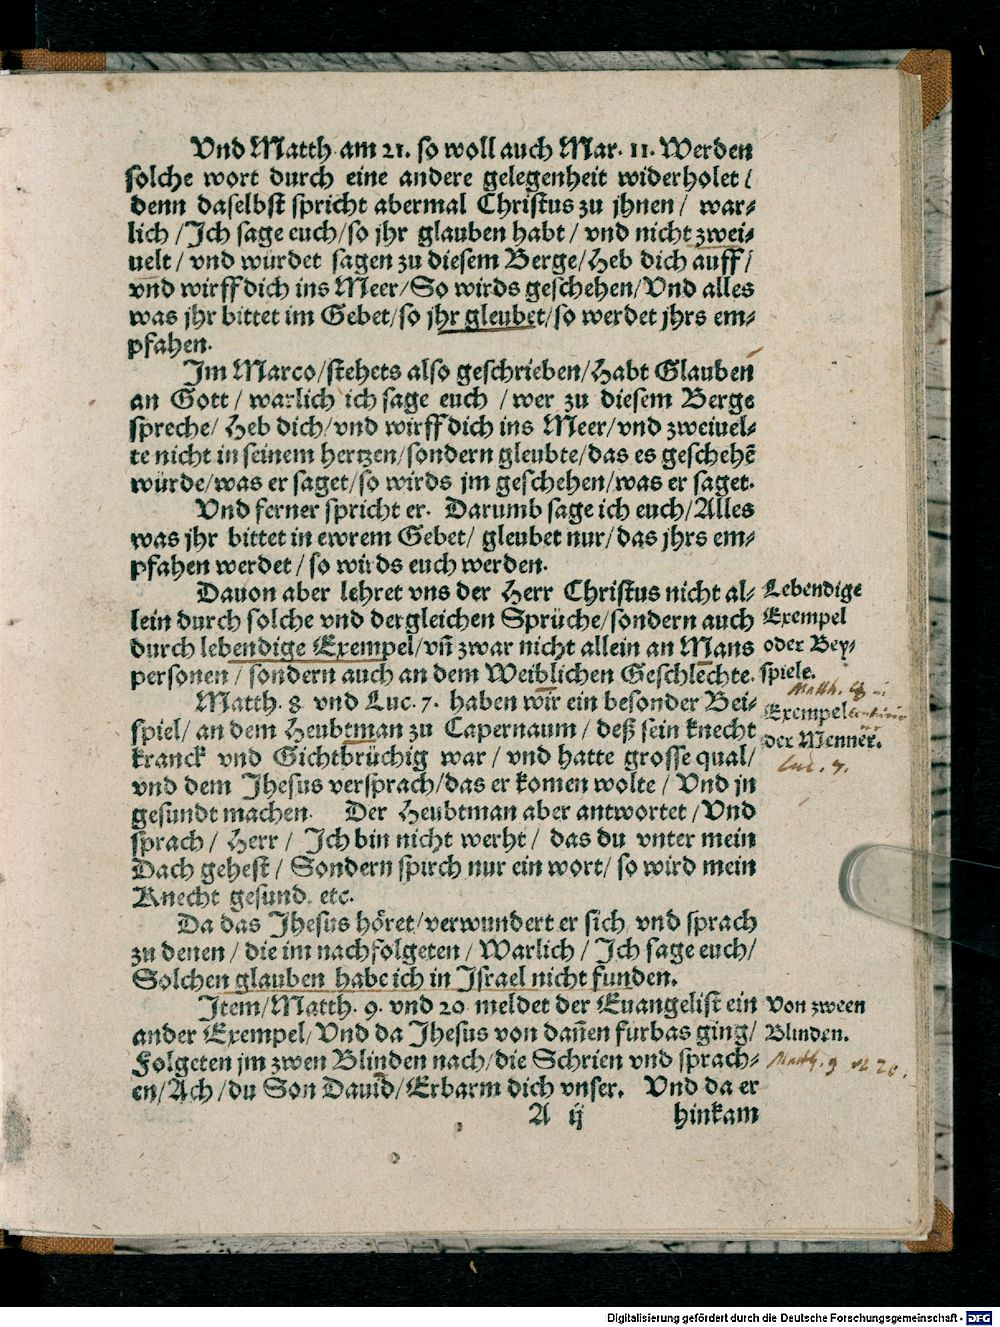 Vnd Matth am 21. so woll auch Mar. 11. Werden
solche wort durch eine andere gelegenheit widerholet /
denn daselbst spricht abermal Christus zu jhnen / war⸗
lich / Ich sage euch/so jhr glauben habt / vnd nicht zwei⸗
uelt / vnd würdet sagen zu diesem Berge/ Heb dich auff /
vnd wirff dich ins Meer/So wirds geschehen/Vnd alles
was jhr bittet im Gebet/so jhr gleubet/so werdet jhrs em⸗
pfahen.
Im Marco/stehets also geschrieben/Habt Glauben
an Gott / warlich ich sage euch / wer zu diesem Berge
spreche/ Heb dich/vnd wirff dich ins Meer/vnd zweiuel⸗
te nicht in seinem hertzen/sondern gleubte/das es geschehē
würde/was er saget/so wirds jm geschehen/was er saget.
Vnd ferner spricht er. Darumb sage ich euch/Alles
was jhr bittet in ewrem Gebet/ gleubet nur/das jhrs em⸗
pfahen werdet / so wirds euch werden.
Dauon aber lehret vns der Herr Christus nicht al⸗
lein durch solche vnd dergleichen Sprüche/sondern auch
durch lebendige Exempel/vñ zwar nicht allein an Mans
personen / sondern auch an dem Weiblichen Geschlechte.
Lebendige
Exempel
oder Bey⸗
spiele.
Matth. 8. vnd Luc. 7. haben wir ein besonder Bei⸗
spiel/ an dem Heubtman zu Capernaum / deß sein knecht
kranck vnd Gichtbrüchig war / vnd hatte grosse qual/
vnd dem Jhesus versprach/das er komen wolte / Vnd jn
gesundt machen. Der Heubtman aber antwortet / Vnd
sprach / Herr / Ich bin nicht werht / das du vnter mein
Dach gehest / Sondern spirch nur ein wort/ so wird mein
Knecht gesund. etc.
Matth. 8
Exempel
der Menner.
Luc. 7.
Da das Jhesus höret/verwundert er sich vnd sprach
zu denen / die im nachfolgeten / Warlich / Ich sage euch/
Solchen glauben habe ich in Israel nicht funden.
Item/Matth. 9. vnd 20 meldet der Euangelist ein
ander Exempel/ Vnd da Jhesus von dañen furbas ging/
Folgeten jm zwen Blinden nach/die Schrien vnd sprach⸗
en/Ach/du Son Dauid/Erbarm dich vnser. Vnd da er
Von zween
Blinden.
Matth. 9 20.
A ij hinkam
Digitalisierung gefördert durch die Deutsche Forschungsgemeinschaft - DFG